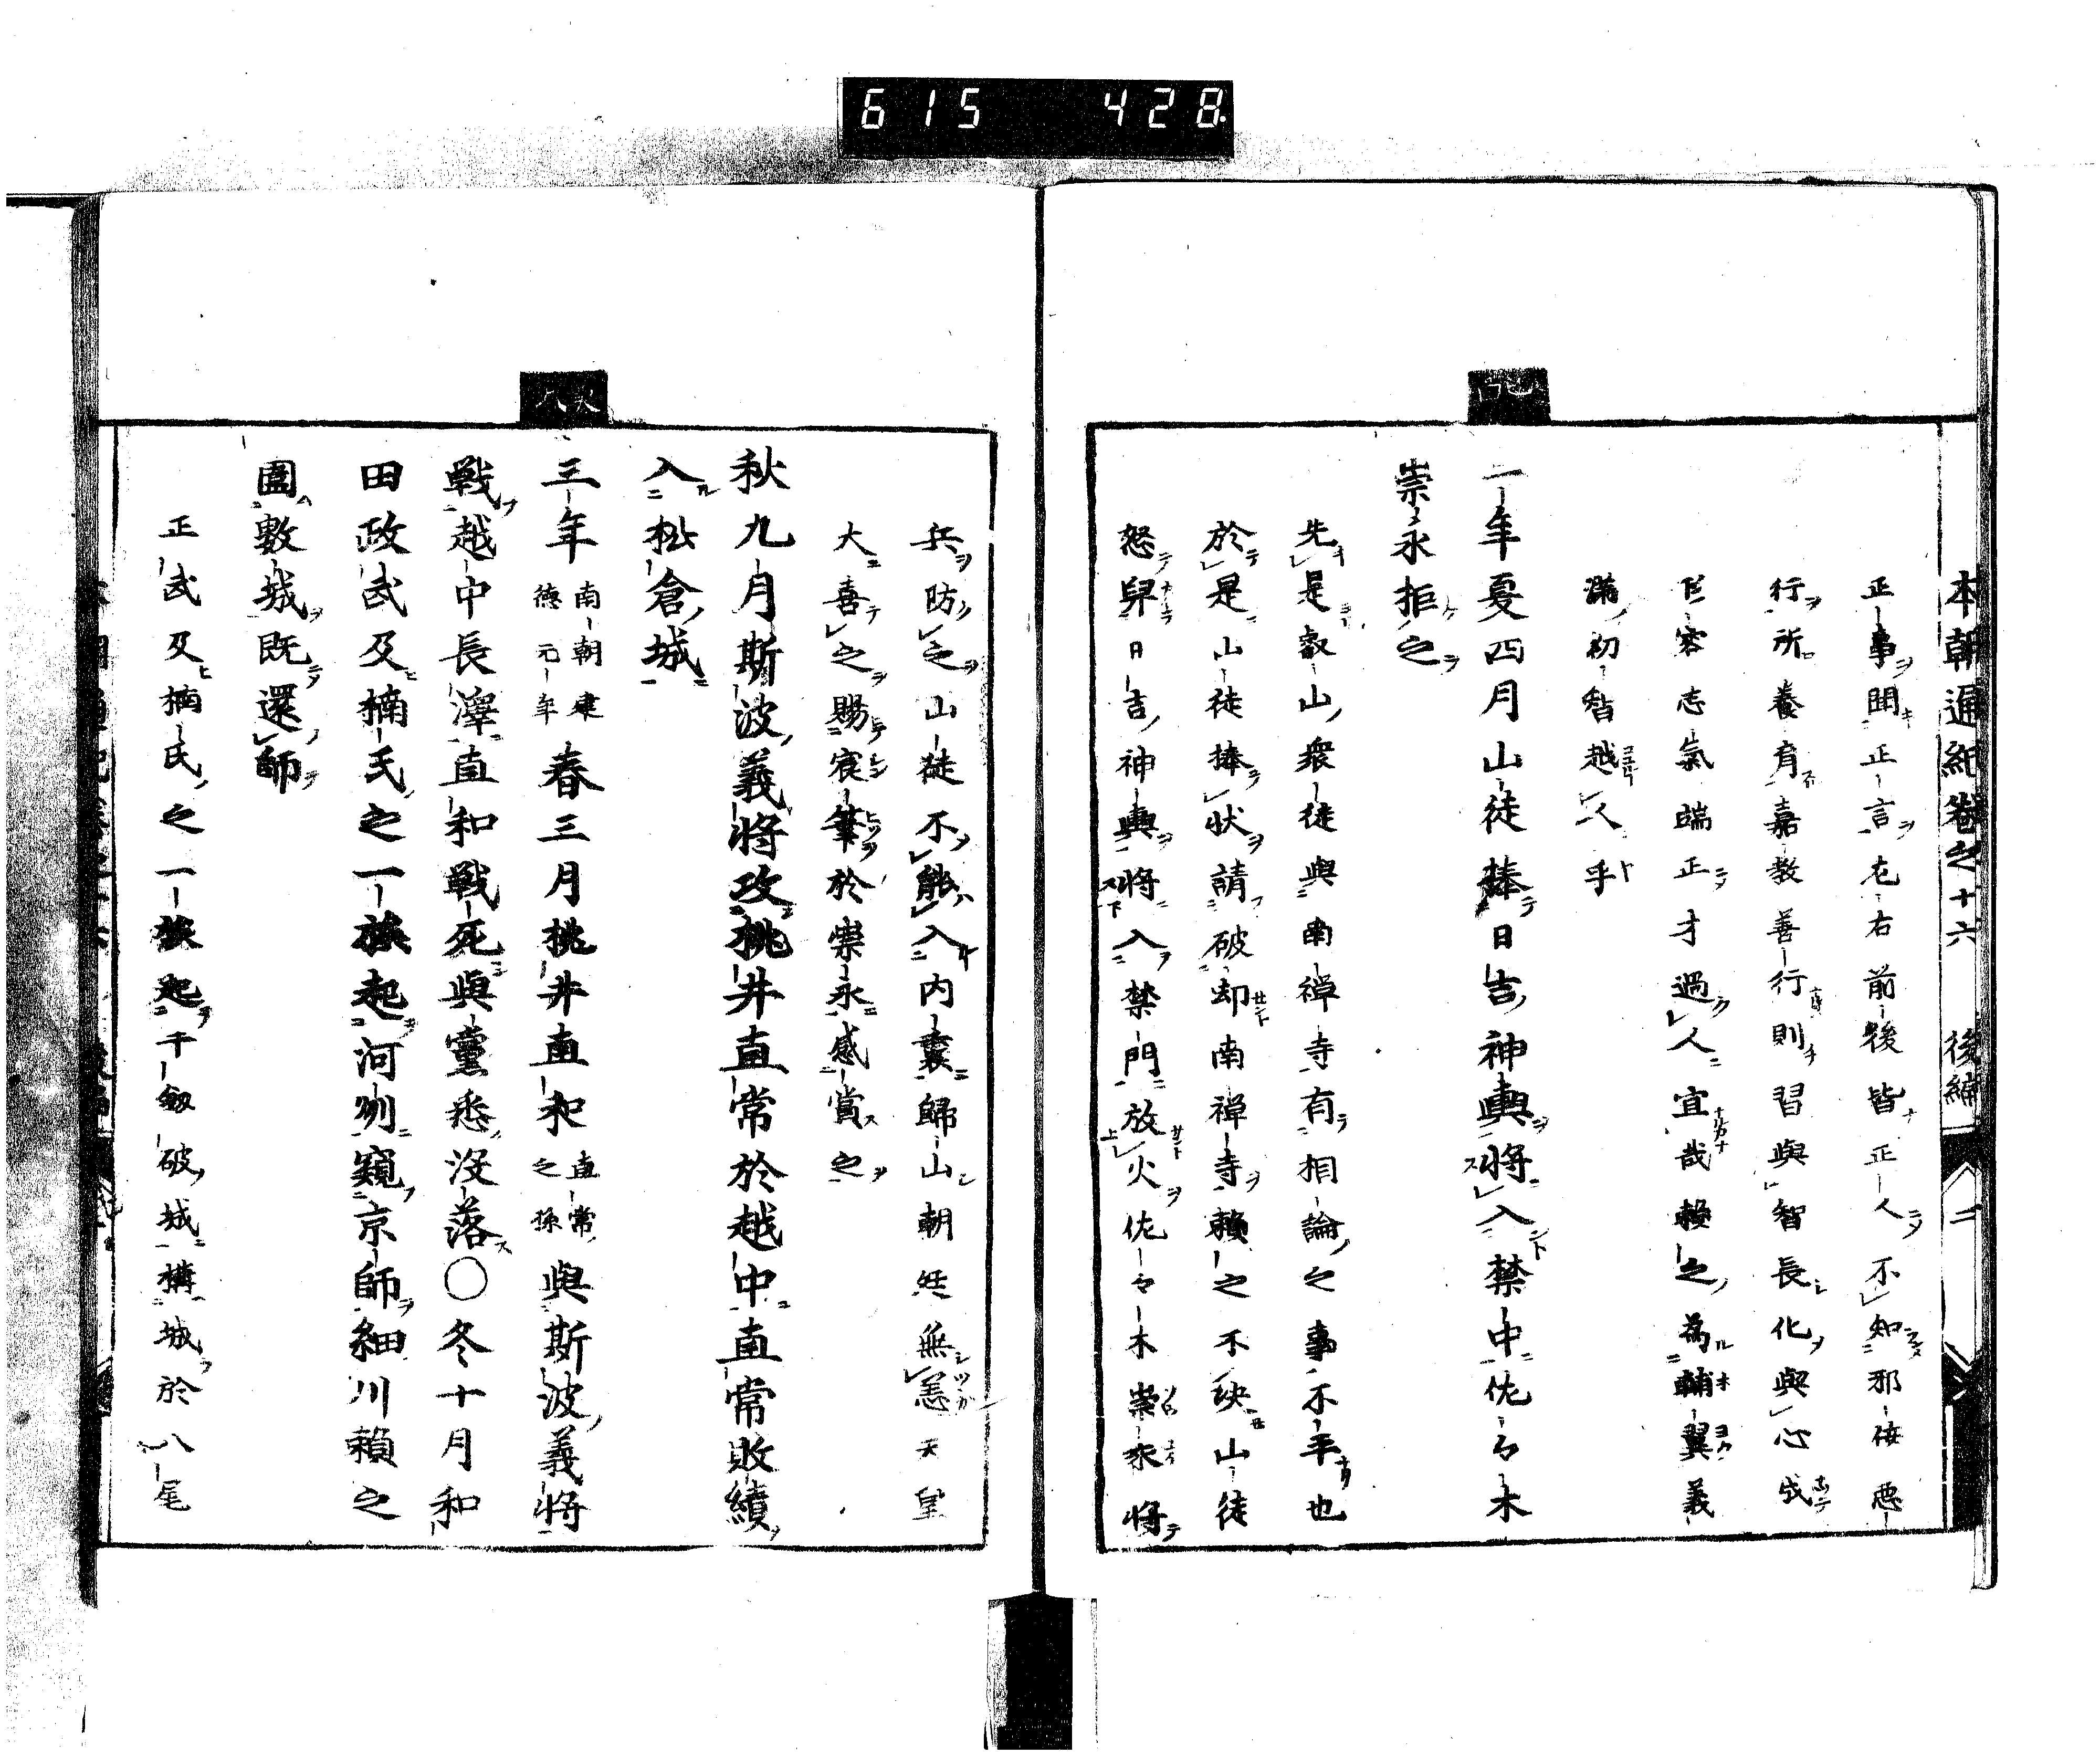 615 428
本朝通紀卷之十六 後編 二
正事聞正言左右前後皆正人不知邪佞悪
行所養有嘉教善行則習與智長化與心成
容志氣端正才過人宜哉賴之為輔翼義
滿初智越人乎
二年夏四月山徒捧日吉神輿將入禁中佐々木
崇永拒之
先是叡山衆徒與南禪寺有相論之事不平也
於是山徒捧狀請破却南禪寺賴之不決山徒
怒舁日吉神輿將入禁門放火佐々木崇永將
兵防之山徒不能入内裏歸山朝廷無恙天皇
大喜之賜宸筆於崇永感賞之
秋九月斯波義將攻桃井直常於越中直常敗績
入松倉城
三年南朝建德元年春三月桃井直和直常之孫與斯波義將
戰越中長澤直和戰死與黨悉沒落〇冬十月和
田政武及楠氏之一族起河州窺京師細川賴之
圍數城既還師
正武及楠氏之一族起千劔破城構城於八尾